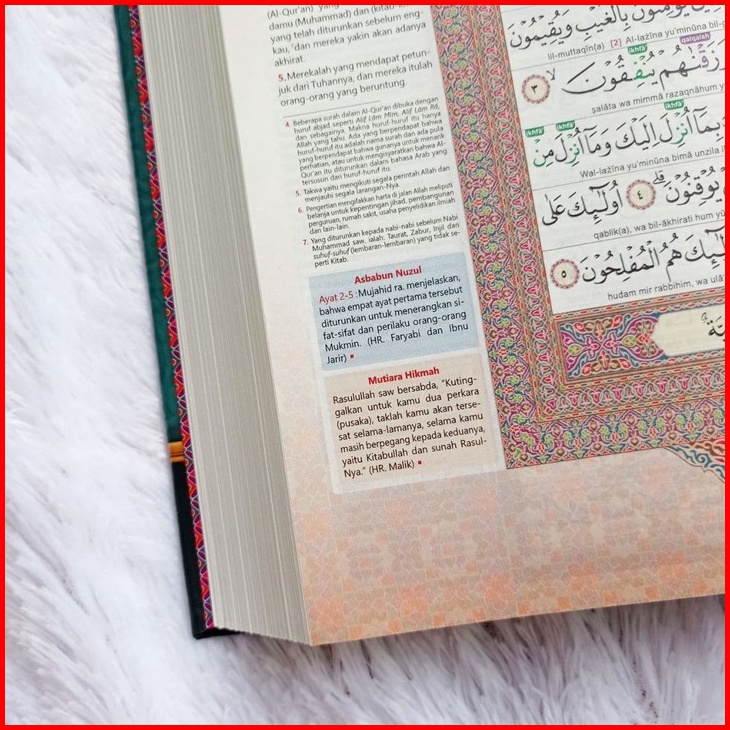 (Al-Qur'an) yang
damu (Muhammad) dan (kitab-
yang telah diturunkan sebelum eng-
kau, dan mereka yakin akan adanya
akhirat.
5. Merekalah yang mendapat petun-
juk dari Tuhannya, dan mereka itulah
orang-orang yang beruntung.
4. Beberapa surah dalam Al-Qur'an dibuka dengan
huruf abjad seperti Alif Lām Mīm, Alif Lām Rā,
dan sebagainya. Makna huruf-huruf itu hanya
Allah yang tahu. Ada yang berpendapat bahwa
huruf-huruf itu adalah nama surah dan ada pula
yang berpendapat bahwa gunanya untuk menarik
perhatian, atau untuk mengisyaratkan bahwa Al-
Qur'an itu diturunkan dalam bahasa Arab yang
tersusun dari huruf-huruf itu.
5. Takwa yaitu mengikuti segala perintah Allah dan
menjauhi segala larangan-Nya.
6. Pengertian menginfakkan harta di jalan Allah meliputi
belanja untuk kepentingan jihad, pembangunan
perguruan, rumah sakit, usaha penyelidikan ilmiah
dan lain-lain.
7. Yang diturunkan kepada nabi-nabi sebelum Nabi
Muhammad saw. ialah: Taurat, Zabur, Injil dan
suhuf-suhuf (lembaran-lembaran) yang tidak se-
perti Kitab.
Asbabun Nuzul
Ayat 2-5 : Mujahid ra. menjelaskan,
bahwa empat ayat pertama tersebut
diturunkan untuk menerangkan si-
fat-sifat dan perilaku orang-orang
Mukmin. (HR. Faryabi dan Ibnu
Jarir)
Mutiara Hikmah
Rasulullah saw bersabda, "Kuting-
galkan untuk kamu dua perkara
(pusaka), taklah kamu akan terse-
sat selama-lamanya, selama kamu
masih berpegang kepada keduanya,
yaitu Kitabullah dan sunah Rasul-
Nya." (HR. Malik)
يُؤْمِنُوْنَ بِالْغَيْبِ وَيُقِيْمُوْنَ
lil-muttaqīn(a) [2] Al-lażīna yu'minūna bil-
ikhfa' qalqalah
رَزَقْنٰهُمْ يُنْفِقُوْنَ ۙ ٣
ṣalāta wa mimmā razaqnāhum
ikhfa' ikhfa' ikhfa'
بِمَآ اُنْزِلَ اِلَيْكَ وَمَآ اُنْزِلَ مِنْ
Wal-lażīna yu'minūna bimā unzila
يُوْقِنُوْنَ ۗ ٤ اُولٰۤىِٕكَ عَلٰى
qablik(a), wa bil-ākhirati hum
هُمُ الْمُفْلِحُوْنَ ٥
hudam mir rabbihim, wa